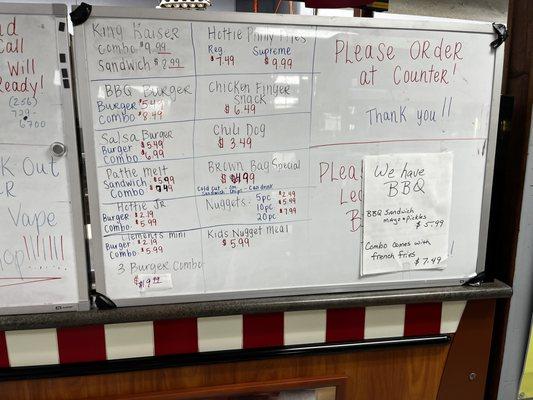 d
Call
Will
Ready!
(256)
6700
k Out
R
Vape
op!!!!!!!
King Kaiser
Combo $9.99
Sandwich $ .99
BBQ Burger
Burger $5.49
Combo $8.49
Salsa Burger
Burger $5.49
Combo $6.99
Pattie Melt
Sandwich $5.99
Combo $7.49
Hottie Jr
Burger $2.19
Combo $5.99
Clements Mini
Burger $2.19
Combo $5.99
3 Burger Combo
$19.99
Hottie Philly Fries
Reg. Supreme
$7.49 $9.99
Chicken Finger
Snack
$6.49
Chili Dog
$3.49
Brown Bag Special
Cold cut - chips - can drink
Sandwich
Nuggets. 5pc $2.49
10pc $5.99
20pc $7.99
Kids Nugget Meal
$5.99
Please Order
at Counter!
Thank you!!
We have
BBQ
BBQ Sandwich
mayo + pickles
$5.99
Combo comes with
french fries
$7.49